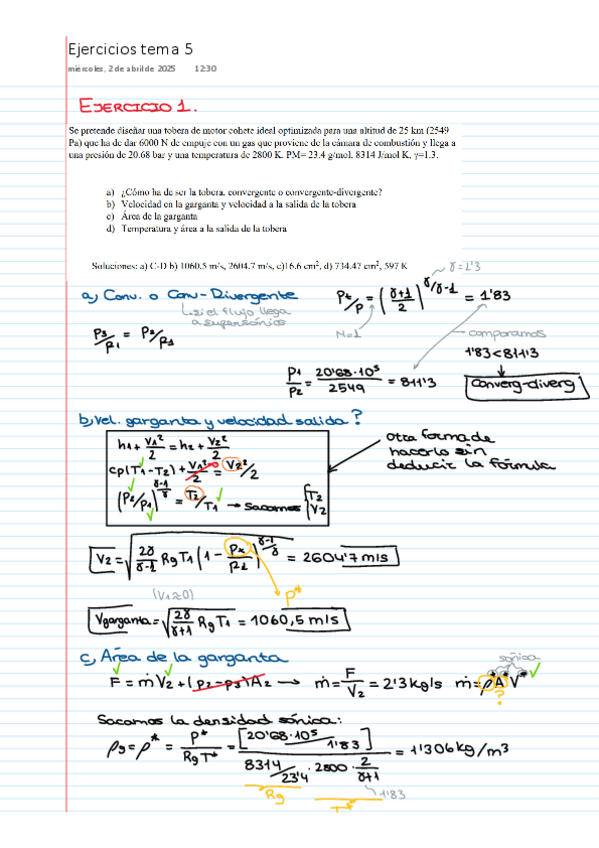 Ejercicios tema 5
miércoles, 2 de abril de 2025 12:30
EJERCICIO 1.
Se pretende diseñar una tobera de motor cohete ideal optimizada para una altitud de 25 km (2549
Pa) que ha de dar 6000 N de empuje con un gas que proviene de la cámara de combustión y llega a
una presión de 20.68 bar y una temperatura de 2800 K. PM= 23.4 g/mol, 8314 J/mol K, γ=1.3.
a) ¿Cómo ha de ser la tobera, convergente o convergente-divergente?
b) Velocidad en la garganta y velocidad a la salida de la tobera
c) Área de la garganta
d) Temperatura y área a la salida de la tobera
Soluciones: a) C-D b) 1060.5 m/s, 2604.7 m/s, c)16.6 cm², d) 734.47 cm², 597 K
γ=1'3
a) Conv. o Conv-Divergente
Pt/P = (γ+1/2)^γ/γ-1 = 1'83
↳si el flujo llega
a supersónico
P3/P1 = P2/P1
M=1
comparamos
1'83<811'3
P1/P2 = 20'68·10⁵/2549 = 811'3
Converg-diverg
b) Vel. garganta y velocidad salida?
h1+V1²/2 = h2+V2²/2
cp(T1-T2)+V1²/2 = V2²/2
(P2/P1)^γ-1/γ = T2/T1 → Sacamos {T2 V2
Otra forma de
hacerlo sin
deducir la fórmula
V2=√2γ/γ-1 Rg T1 (1 - P2/P1)^γ-1/γ = 2604'7 m/s
(V1≈0)
P*
Vgarganta=√2γ/γ+1 Rg T1 = 1060,5 m/s
c) Área de la garganta
sónica
F = ṁV2+(p2-p3)A2 → ṁ = F/V2 = 2'3 kg/s ṁ=ρA*V*
?
Sacamos la densidad sónica:
ρg = ρ* = P*/Rg T* = [20'68·10⁵/1'83]/8314/23'4 · 2800 · 2/γ+1 = 1'306 kg/m³
Rg
T*
1'83